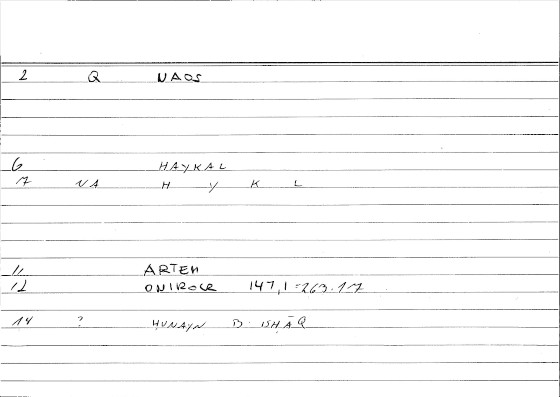 2 Q NAOS
6 HAYKAL
7 NA H Y K L
11 ARTEM
12 ONIROCR 147,1 = 263.17
14 ? ḤUNAYN B. ISḤĀQ